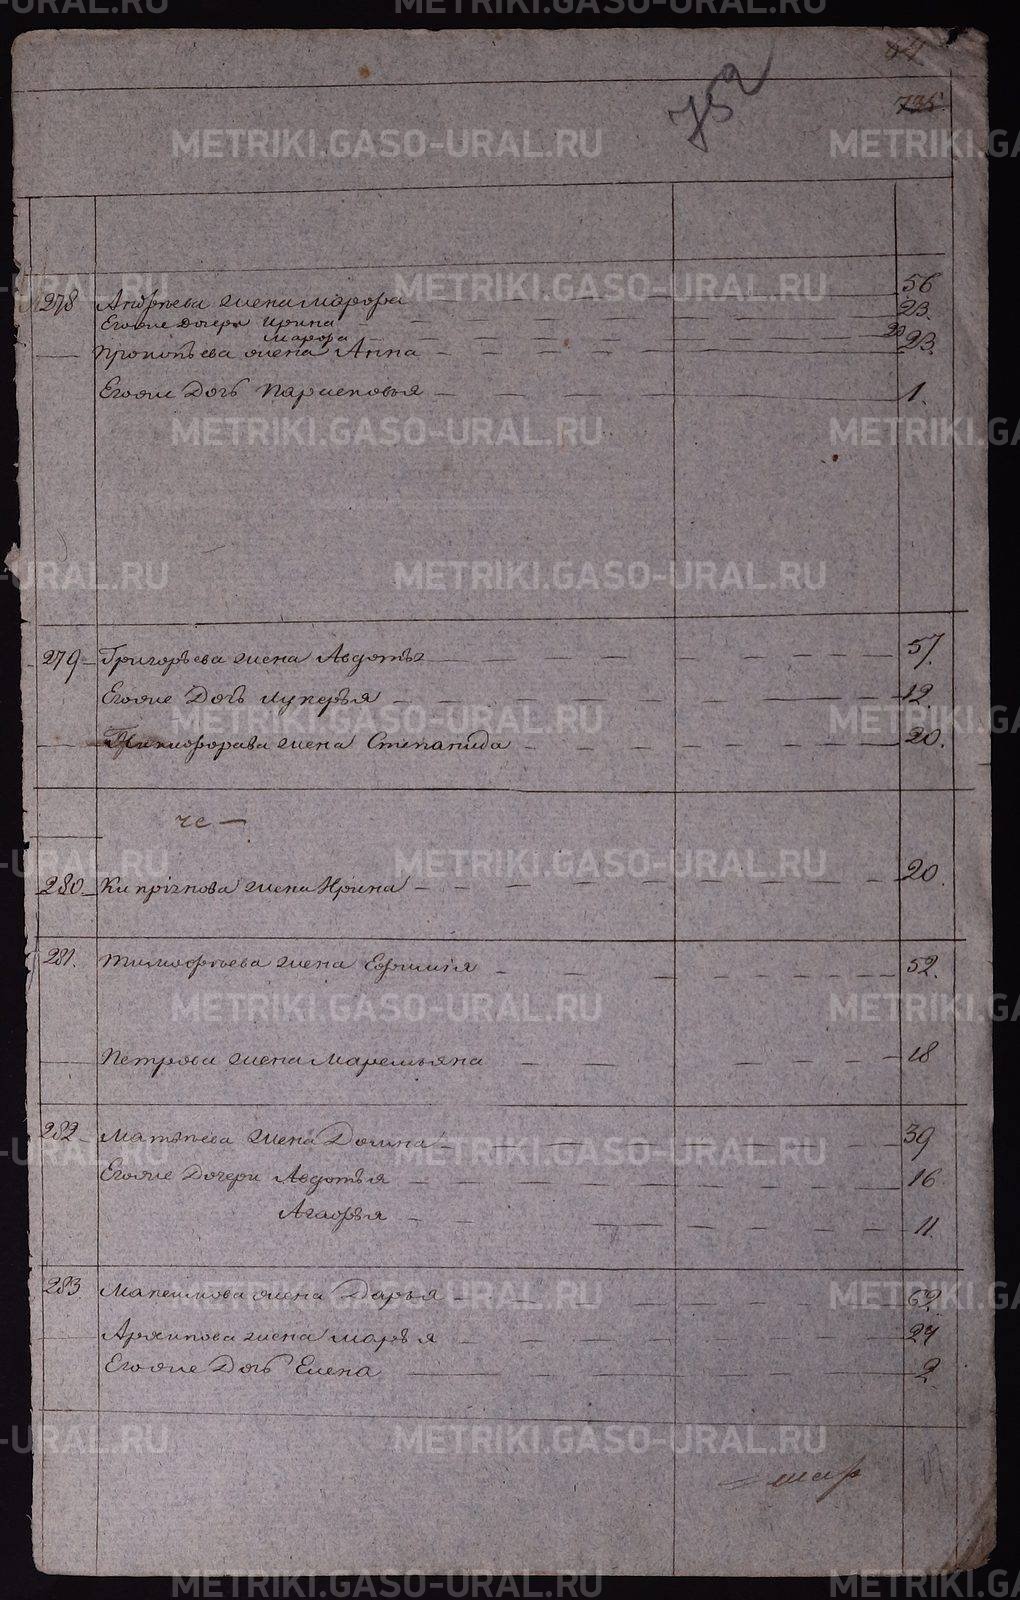 84
752
735.
278 Андреева жена Марфа 56
Егоже Дочери Ирина 23.
Марфа 20
Прокопьева жена Анна 23.
Егоже Дочь Парасковья 1.
279 Григорьева жена Авдотья 57.
Егоже Дочь Лукерья 12.
Никифорова жена Степанида 20.
че
280 Кипріянова жена Ирина 20.
281. Тимофеева жена Евфимія 52.
Петрова жена Маремьяна 18
282 Матвеева жена Домна 39
Егоже Дочери Авдотья 16
Агафья 11
283. Максимова жена Дарья 62.
Архипова жена Марья 24
Егоже Дочь Елена 2
METRIKI.GASO-URAL.RU